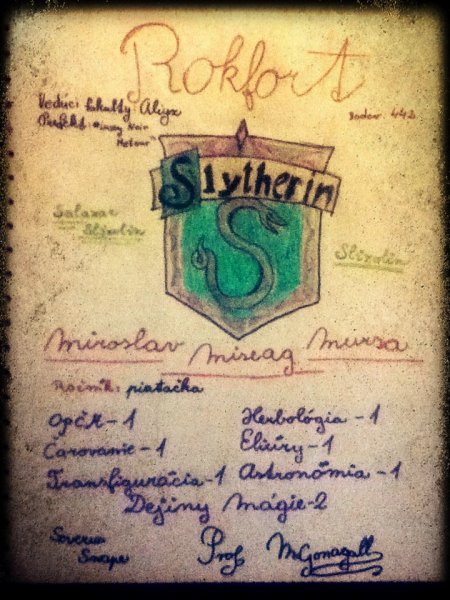 Rokfort
Vedúci fakulty Aliyx
Prefekt
442
Slytherin
Salazar
Slizolin
Slizolin
Miroslav Miseag Mursa
Ročník: piatačka
OPČM-1 Herbológia-1
Čarovanie-1 Elixíry-1
Transfigurácia-1 Astronómia-1
Dejiny mágie-2
Severus
Snape
Prof McGonagall